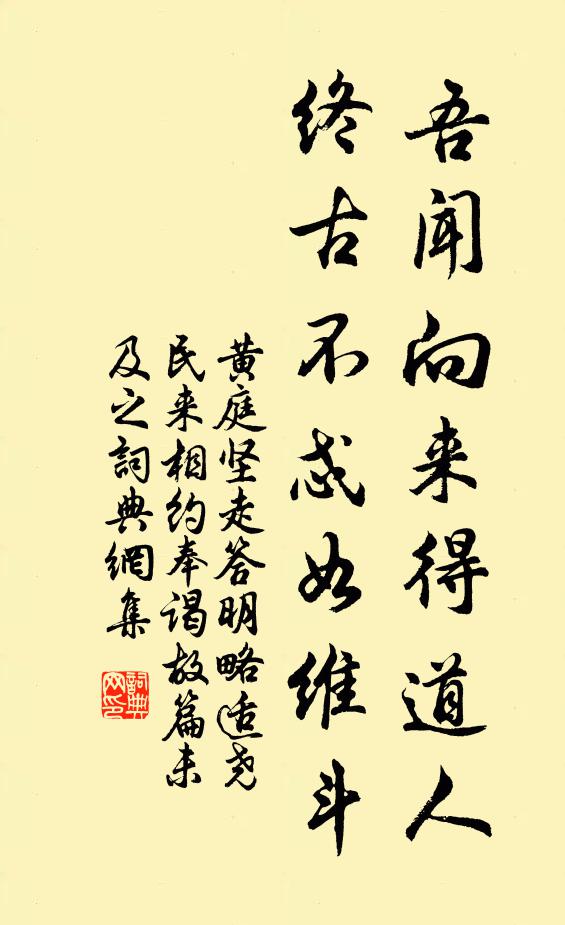 吾闻向来得道人
终古不忒如维斗
黄庭坚走答明略适尧
民来相约奉谒故篇末
及之詞典網集
詞典網印